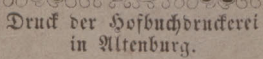 Druck der Hofbuchdruckerei
in Altenburg.